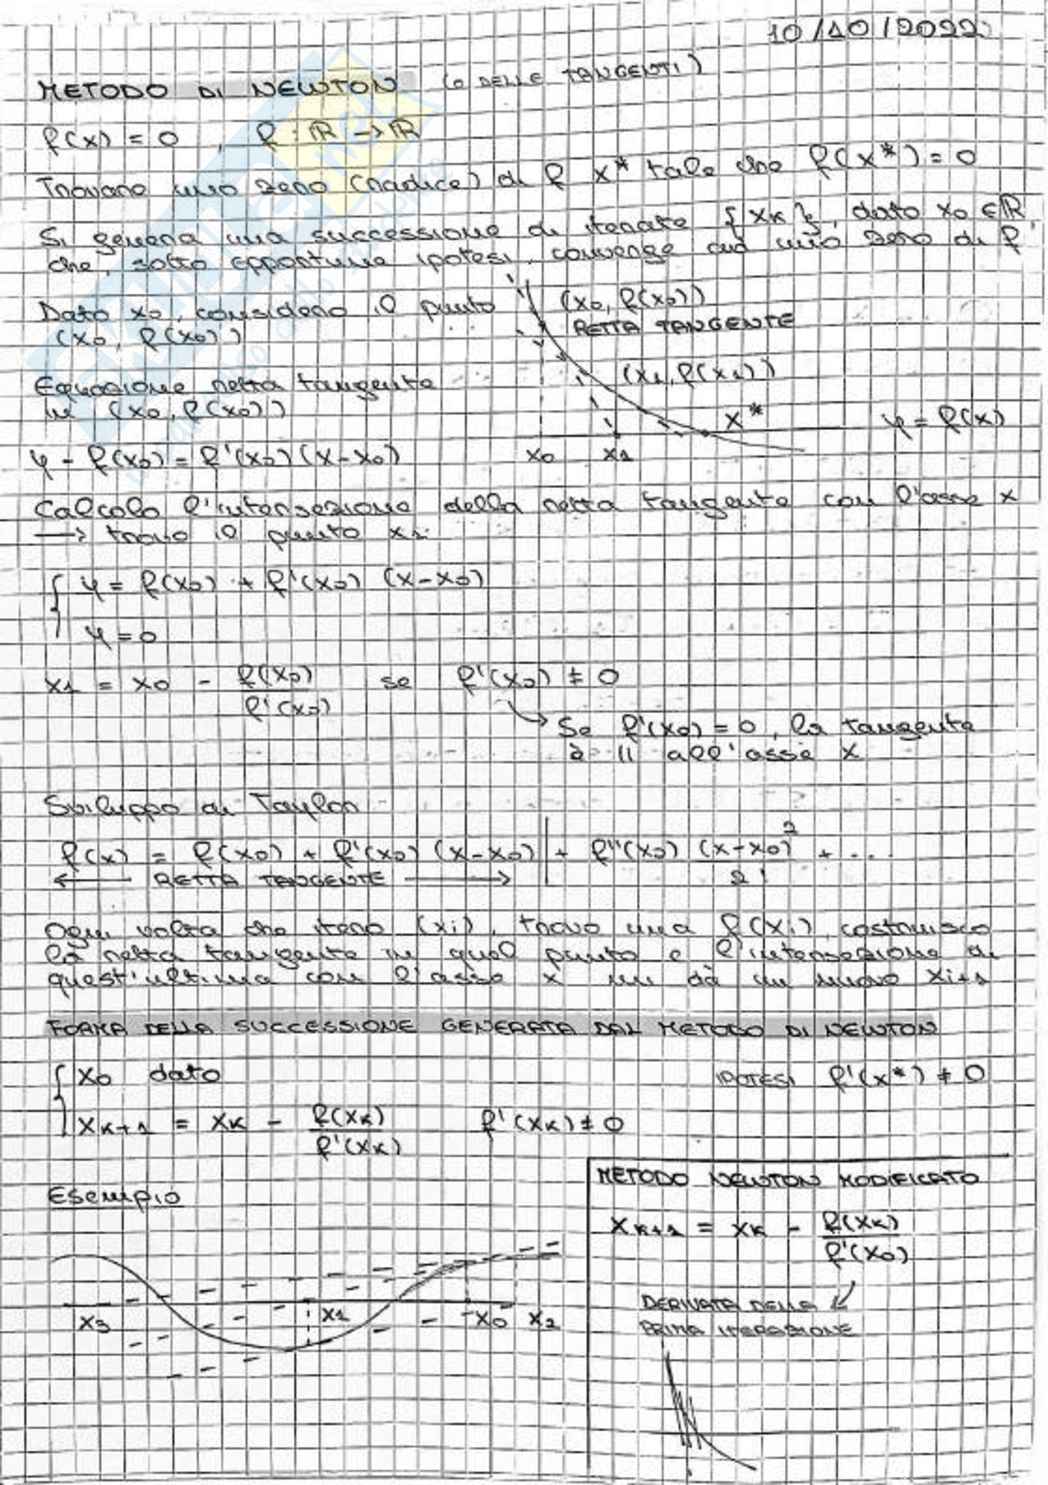 10/10/2022
METODO DI NEWTON (O DELLE TANGENTI)
f(x) = 0 , f : ℝ → ℝ
Trovare uno zero (radice) di f x* tale che f(x*) = 0
Si genera una successione di iterate {xk}, dato x0 ∈ ℝ,
che, sotto opportune ipotesi, converge ad uno zero di f
Dato x0, considero il punto
(x0, f(x0))
(x0, f(x0))
RETTA TANGENTE
(x1, f(x1))
x*
y = f(x)
x0 x1
Equazione retta tangente
in (x0, f(x0))
y - f(x0) = f'(x0) (x-x0)
Calcolo l'intersezione della retta tangente con l'asse x
→ trovo il punto x1.
{ y = f(x0) + f'(x0) (x-x0)
y = 0
x1 = x0 - f(x0)/f'(x0) se f'(x0) ≠ 0
↳ Se f'(x0) = 0, la tangente
è // all'asse x
Sviluppo di Taylor
f(x) = f(x0) + f'(x0) (x-x0) | + f''(x0) (x-x0)²/2! + ...
← RETTA TANGENTE →
Ogni volta che itero (xi), trovo una f(xi), costruisco
la retta tangente in quel punto e l'intersezione di
quest'ultima con l'asse x mi dà un nuovo xi+1
FORMA DELLA SUCCESSIONE GENERATA DAL METODO DI NEWTON
{ x0 dato IPOTESI f'(x*) ≠ 0
xk+1 = xk - f(xk)/f'(xk) f'(xk) ≠ 0
Esempio
x3 x1 x0 x2
METODO NEWTON MODIFICATO
xk+1 = xk - f(xk)/f'(x0)
DERIVATA DELLA
PRIMA ITERAZIONE